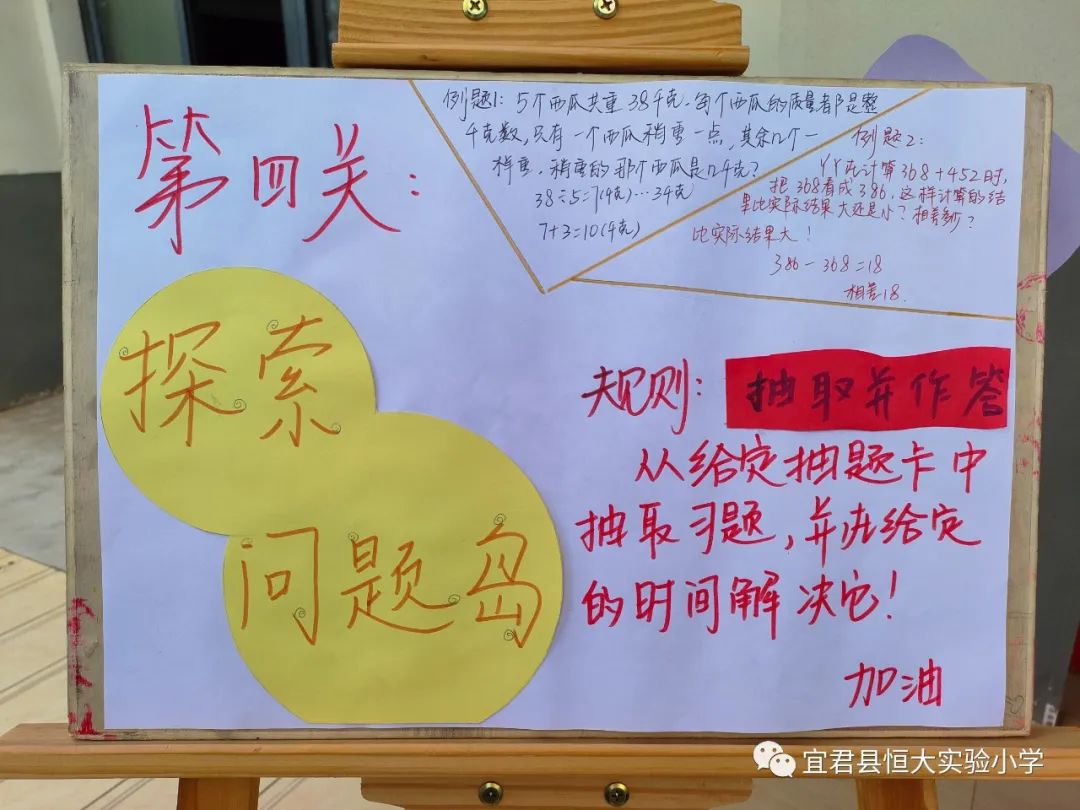 第四关：
例题1：5个西瓜共重38千克.每个西瓜的质量都是整
千克数,只有一个西瓜稍重一点,其余几个一
样重.稍重的那个西瓜是几千克?
38÷5=7(千克)…3千克
7+3=10(千克)
例题2：
丫丫在计算368+452时,
把368看成386.这样计算的结
果比实际结果大还是小?相差多少?
比实际结果大!
386-368=18
相差18.
探索
问题岛
规则: 抽取并作答
从给定抽题卡中
抽取习题,并在给定
的时间解决它!
加油
宜君县恒大实验小学